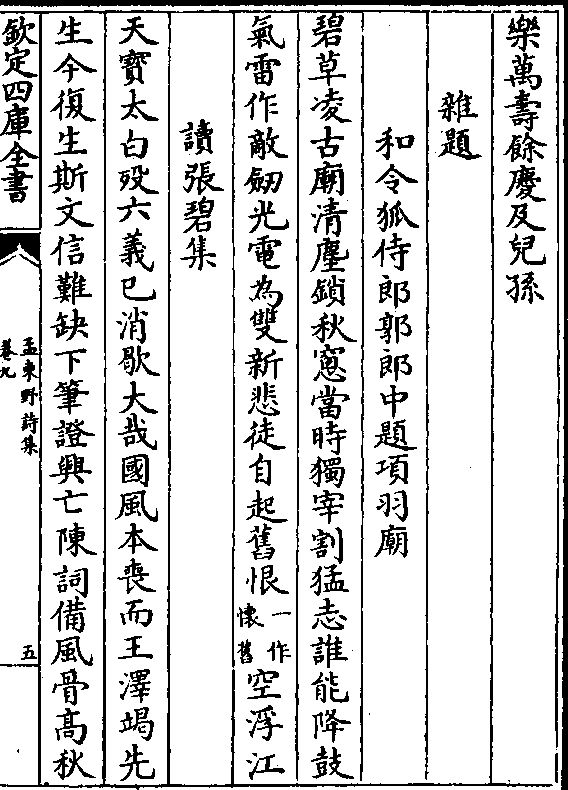 樂萬壽餘慶及兒孫
雜題
和令狐侍郎郭郎中題項羽廟
碧草凌古廟清塵鎖秋窻當時獨宰割猛志誰能降鼓
氣雷作敵劒光電為雙新悲徒自起舊恨一作懷舊空浮江
讀張碧集
天寳太白歿六義已消歇大哉國風本喪而王澤竭先
生今復生斯文信難缺下筆證興亡陳詞備風骨髙秋
欽定四庫全書
孟東野詩集
卷九
五